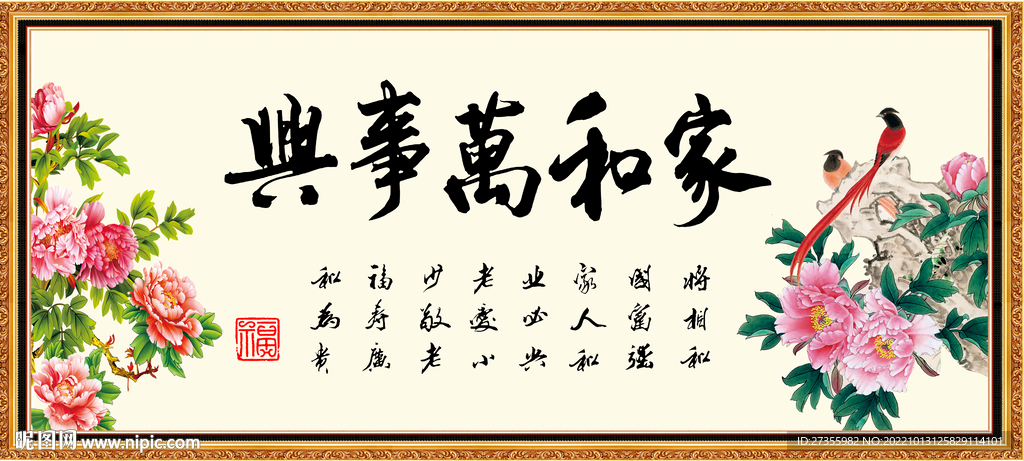 家和萬事興
将相和
國富强
家人和
业必兴
老愛小
少敬老
福寿廣
和为贵
昵图网 www.nipic.com
ID:27355982 NO:20221013125829114101